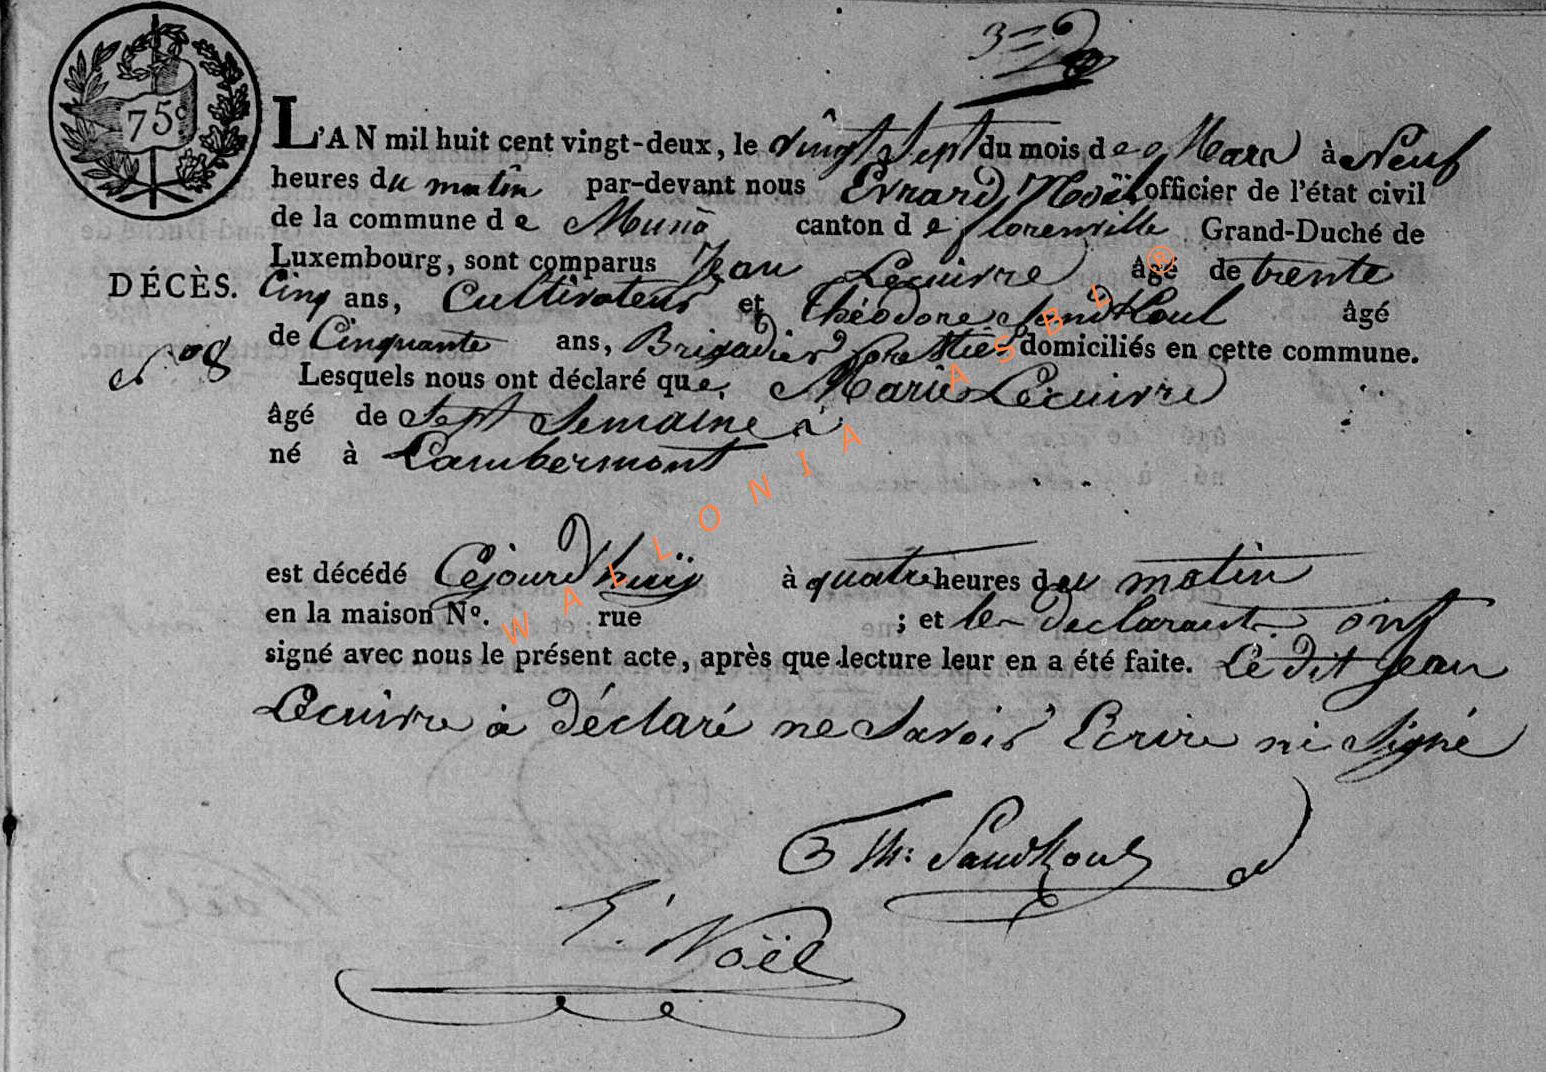 3=
75c
L'AN mil huit cent vingt-deux, le vîngt Sept du mois de Mars à Neuf
heures du matin par-devant nous Evrard Noël officier de l'état civil
de la commune de Muno canton de florenville Grand-Duché de
Luxembourg, sont comparus Jean Lecuivre âgé de trente
DÉCÈS.
Cinq ans, Cultivateur et Théodore Sandkoul âgé
de Cinquante ans, Brigadier forestier domiciliés en cette commune.
Lesquels nous ont déclaré que Marie Lecuivre
âgé de Sept Semaine à
né à Lambermont
est décédé Cejourd'huÿ à quatre heures deu matin
en la maison Nº. rue ; et les declarant ont
signé avec nous le présent acte, après que lecture leur en a été faite. Le dit Jean
Lecuivre à déclaré ne Savoir Ecrire ni Signé
Th: Sandkoul
E. Noël
WALLONIA ASBL ®